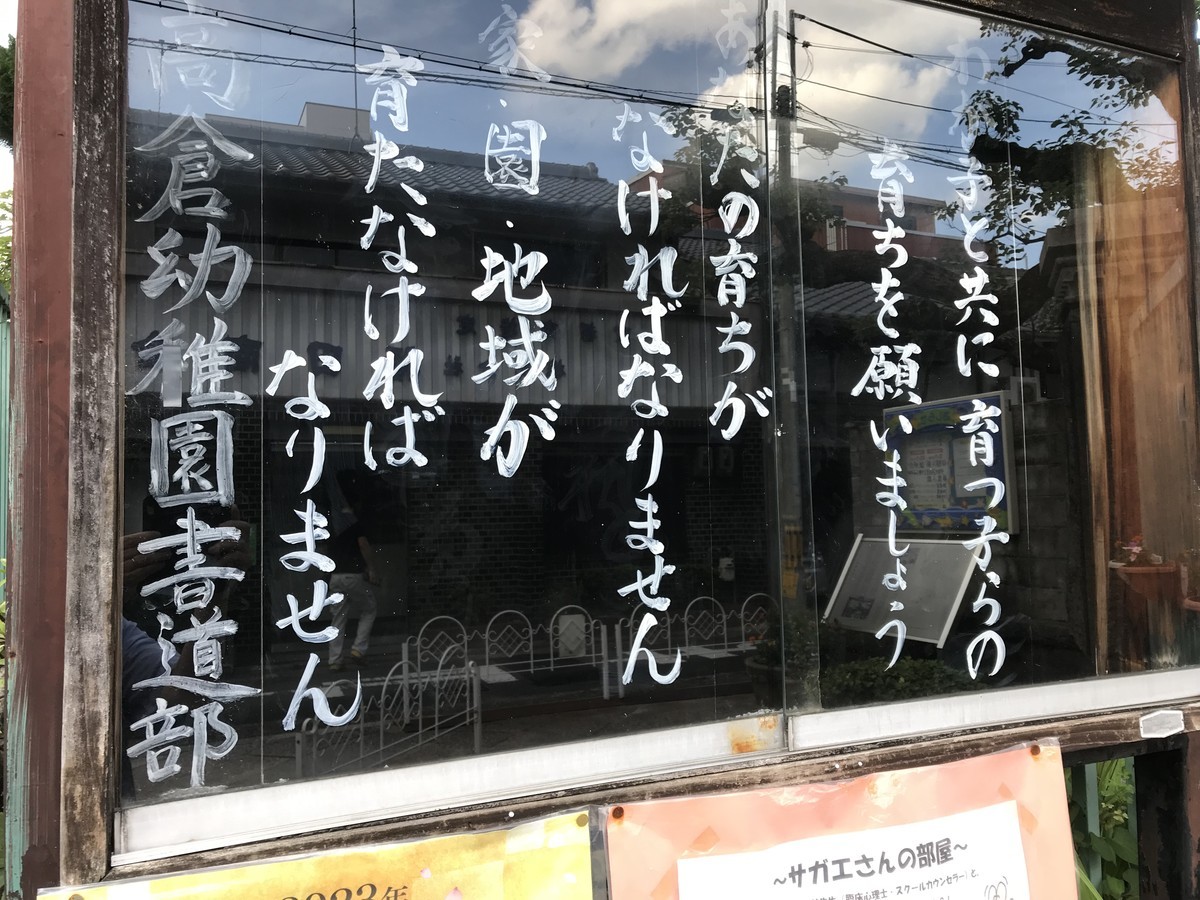 わが子と共に 育つ子らの
育ちを願いましょう
あなたの育ちが
なければなりません
家・園・地域が
育たなければ
なりません
高倉幼稚園書道部
2023年
~サガエさんの部屋~
臨床心理士・スクールカウンセラー